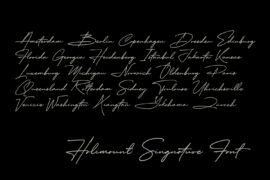 Amsterdam Berlin Copenhagen Dresden Edinburg
Florida Georgia Heidenberg Istanbul Jakarta Kansas
Luxemburg Michigan Norwich Oldenburg Paris
Queensland Rotterdam Sidney Toulouse
Venice Washington Xiangtan Yokohama Zurich
Holimount Singnature Font